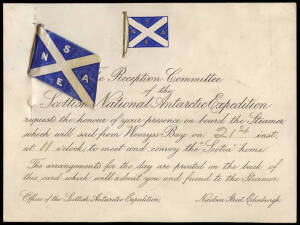 S
N A
E
The Reception Committee
of the
Scottish National Antarctic Expedition
requests the honour of your presence on board the Steamer
which will sail from Wemyss Bay on 21st inst.
at 11 o'clock to meet and convoy the "Scotia" home
The arrangements for the day are printed on the back of
this card which will admit you and friend to the Steamer.
Offices of the Scottish Antarctic Expedition. Street, Edinburgh.